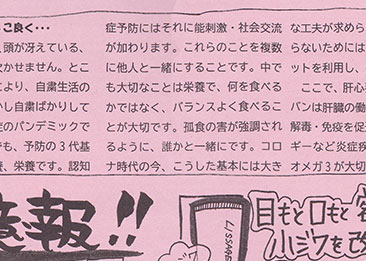 こ良く…
、頭が冴えている、
欠かせません。とこ
により、自粛生活の
かし自粛ばかりして
症のパンデミックで
でも、予防の3代基
養、栄養です。認知
症予防にはそれに能刺激・社会交流
が加わります。これらのことを複数
に他人と一緒にすることです。中で
も大切なことは栄養で、何を食べる
かではなく、バランスよく食べるこ
とが大切です。孤食の害が強調され
るように、誰かと一緒にです。コロ
ナ時代の今、こうした基本には大き
な工夫が求めら
らないためには
ットを利用し、
ここで、肝心
バンは肝臓の働
解毒・免疫を促
ギーなど炎症疾
オメガ3が大切
報!!
LISSAGE
目もと口もと
小ジワを改